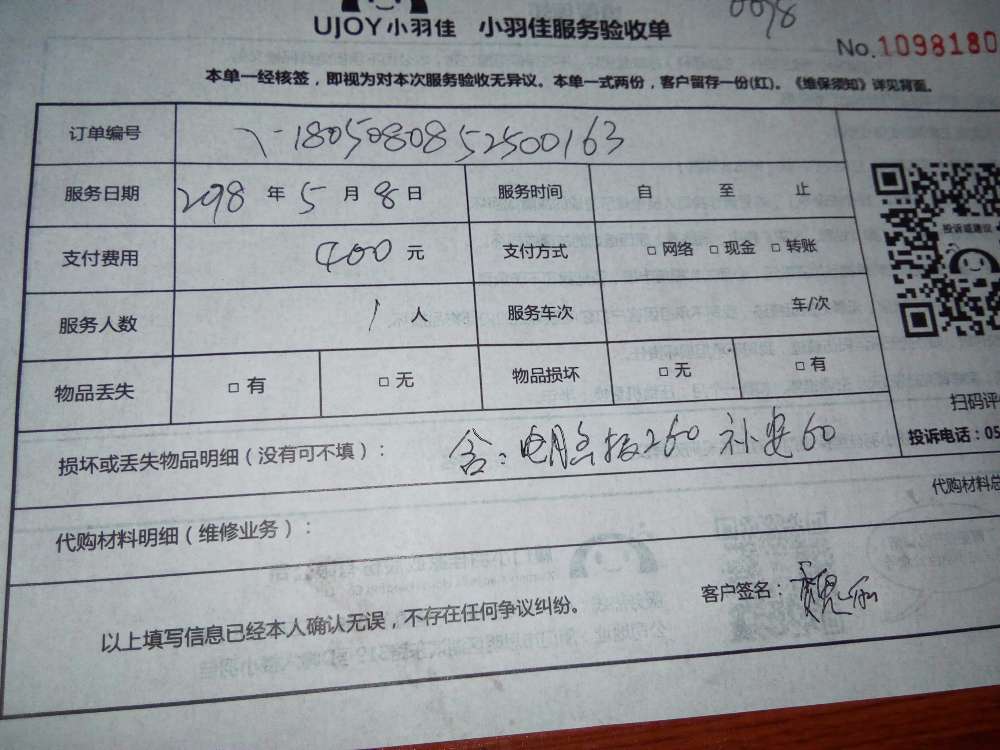 0078
UJOY小羽佳 小羽佳服务验收单
No.1098180
本单一经核签，即视为对本次服务验收无异议。本单一式两份，客户留存一份(红)。《维保须知》详见背面。
订单编号 1805080852500163
服务日期 2018年5月8日 服务时间 自 至 止
投诉或建议
支付费用 400元 支付方式 □网络 □现金 □转账
服务人数 1人 服务车次 车/次
物品丢失 □有 □无 物品损坏 □无 □有
扫码评
损坏或丢失物品明细（没有可不填）： 含：电脑板260 补安60
投诉电话：05
代购材料总
代购材料明细（维修业务）：
以上填写信息已经本人确认无误，不存在任何争议纠纷。
客户签名：